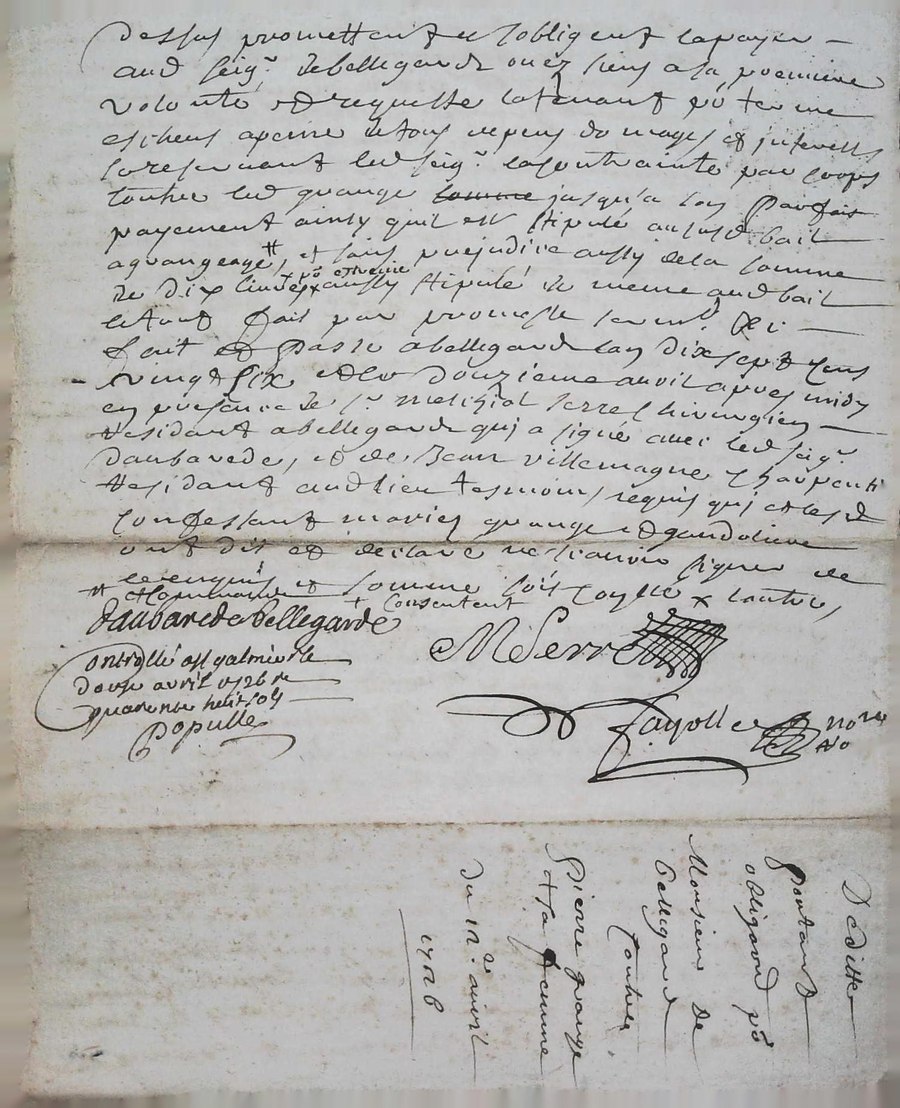 dessus promettent et sobligent la payer
aud seigr de bellegarde ou ez siens a la premiere
volonté et requeste la tenant po terme
escheus a peine de tous depens domages et interests
se reservant led seigr la contrainte par corps
contre led grange somme jusqua son parfait
payement ainsy quil est stipulé au susd bail
a grangeage, # et sans prejudice aussy de la somme
de dix livres x po estreine aussy stipulé de meme aud bail
le tout fait par promesse serment &c
fait et passé a bellegarde lan dix sept cens
vingt six et le douzieme avril apres midy
en presence de sr melchiol serre chirurgien
residant a bellegarde qui a signé avec led seigr
daubarede, et de Jean villemagne charpenti
residant aud lieu tesmoins requis qui et lesd
confessant mariés grange et gandoliere
ont dit et declaré ne scavoir signer de
ce enquis et sommé sois rayllé x contre,
# et sommé + consentent
daubarede bellegarde
MSerre
Controllé a st galmier le
douze avril 1726 re
quarente huit sols
Populle
Fayolle nore
Ro
Deditte
portant
obligaond po
Monsieur de
bellegarde
Contre
Pierre grange
et sa femme
du 12e avril
1726